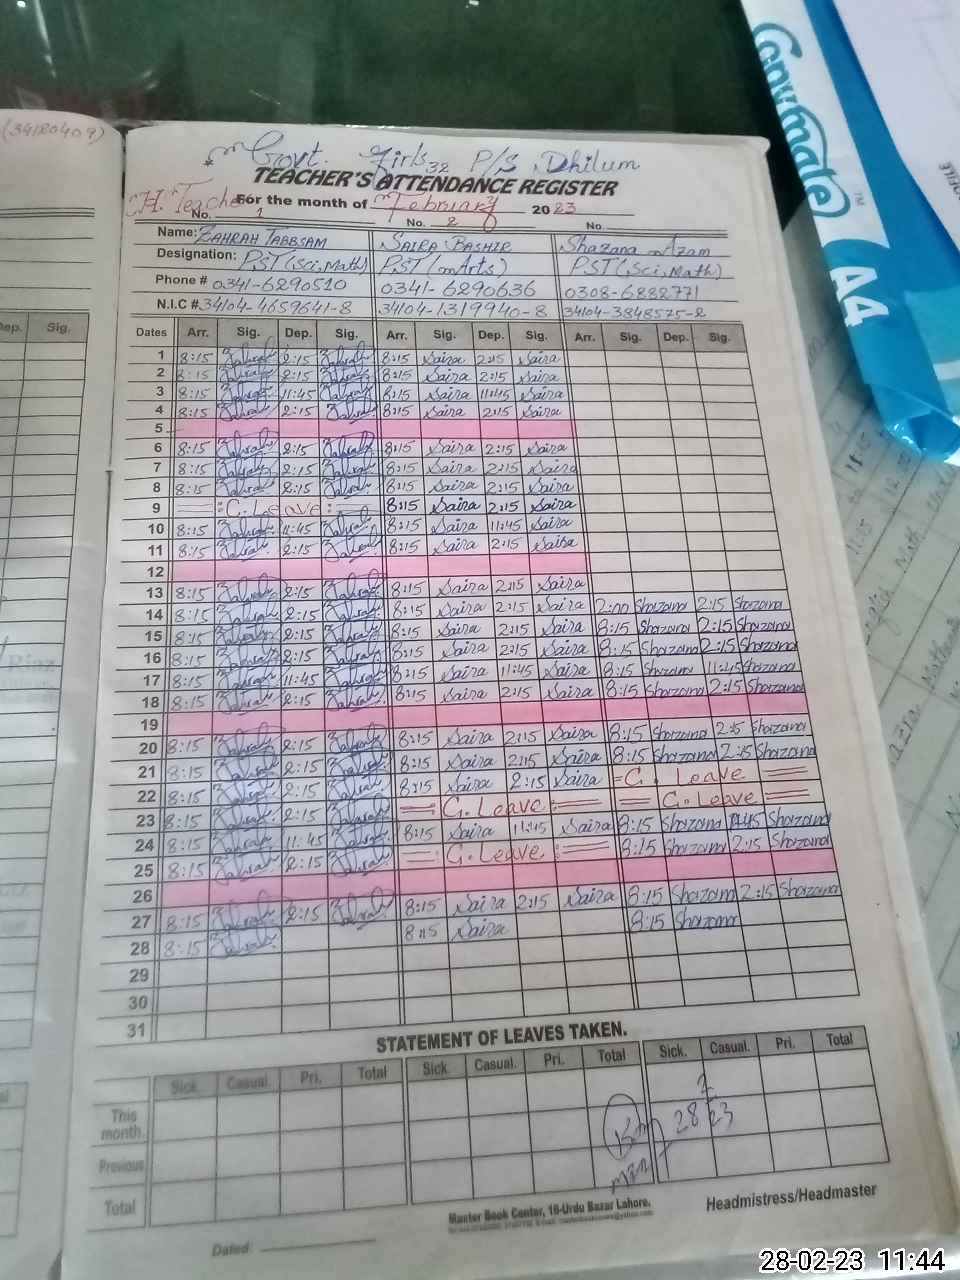 (34120409)
Govt. Girls P/S Dhilum
32
TEACHER'S ATTENDANCE REGISTER
H. Teacher For the month of February 2023
No. 1 No. 2 No.
Name: ZAHRAH TABBSAM SAIRA BASHIR Shazana Azam
Designation: PST (Sci, Math) PST (Arts) PST (Sci, Math)
Phone # 0341-6290510 0341-6290636 0308-6882771
N.I.C #. 34104-4659641-8 34104-1319940-8 34104-3848575-2
Dep. Sig.
Dates Arr. Sig. Dep. Sig. Arr. Sig. Dep. Sig. Arr. Sig. Dep. Sig.
1 8:15 Zahrah 2:15 Zahrah 8:15 Saira 2:15 Saira
2 8:15 Zahrah 2:15 Zahrah 8:15 Saira 2:15 Saira
3 8:15 Zahrah 11:45 Zahrah 8:15 Saira 11:45 Saira
4 8:15 Zahrah 2:15 Zahrah 8:15 Saira 2:15 Saira
5
6 8:15 Zahrah 2:15 Zahrah 8:15 Saira 2:15 Saira
7 8:15 Zahrah 2:15 Zahrah 8:15 Saira 2:15 Saira
8 8:15 Zahrah 2:15 Zahrah 8:15 Saira 2:15 Saira
9 C. Leave 8:15 Saira 2:15 Saira
10 8:15 Zahrah 11:45 Zahrah 8:15 Saira 11:45 Saira
11 8:15 Zahrah 2:15 Zahrah 8:15 Saira 2:15 Saira
12
13 8:15 Zahrah 2:15 Zahrah 8:15 Saira 2:15 Saira
14 8:15 Zahrah 2:15 Zahrah 8:15 Saira 2:15 Saira 2:00 Shazana 2:15 Shazana
15 8:15 Zahrah 2:15 Zahrah 8:15 Saira 2:15 Saira 8:15 Shazana 2:15 Shazana
16 8:15 Zahrah 2:15 Zahrah 8:15 Saira 2:15 Saira 8:15 Shazana 2:15 Shazana
17 8:15 Zahrah 11:45 Zahrah 8:15 Saira 11:45 Saira 8:15 Shazana 11:45 Shazana
18 8:15 Zahrah 2:15 Zahrah 8:15 Saira 2:15 Saira 8:15 Shazana 2:15 Shazana
19
20 8:15 Zahrah 2:15 Zahrah 8:15 Saira 2:15 Saira 8:15 Shazana 2:15 Shazana
21 8:15 Zahrah 2:15 Zahrah 8:15 Saira 2:15 Saira 8:15 Shazana 2:15 Shazana
22 8:15 Zahrah 2:15 Zahrah 8:15 Saira 2:15 Saira C. Leave
23 8:15 Zahrah 2:15 Zahrah C. Leave C. Leave
24 8:15 Zahrah 11:45 Zahrah 8:15 Saira 11:45 Saira 8:15 Shazana 11:45 Shazana
25 8:15 Zahrah 2:15 Zahrah C. Leave 8:15 Shazana 2:15 Shazana
26
27 8:15 Zahrah 2:15 Zahrah 8:15 Saira 2:15 Saira 8:15 Shazana 2:15 Shazana
28 8:15 Zahrah 8:15 Saira 8:15 Shazana
29
30
31
STATEMENT OF LEAVES TAKEN.
Sick. Casual. Pri. Total Sick. Casual. Pri. Total Sick. Casual. Pri. Total
This month.
Previous
Total
28 2 23
Master Book Center, 16-Urdu Bazar Lahore.
Headmistress/Headmaster
Dated
Copymate™ A4
28-02-23 11:44